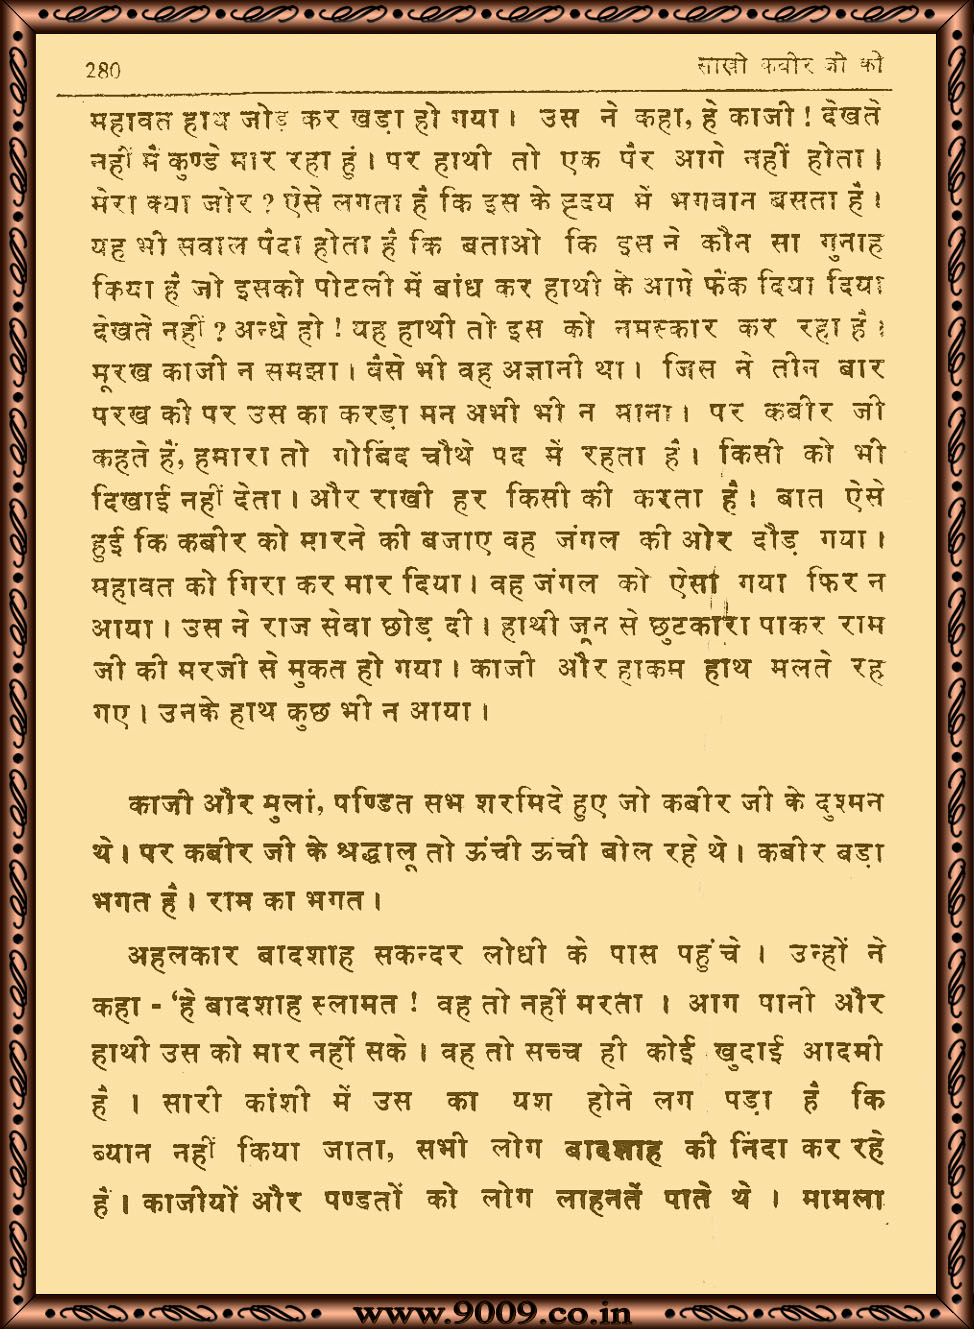 280
साखी कबीर जी की
महावत हाथ जोड़ कर खड़ा हो गया। उस ने कहा, हे काजी ! देखते
नहीं मैं कुण्डे मार रहा हूं। पर हाथी तो एक पैर आगे नहीं होता।
मेरा क्या जोर ? ऐसे लगता है कि इस के ह्रदय में भगवान बसता है।
यह भी सवाल पैदा होता है कि बताओ कि इस ने कौन सा गुनाह
किया है जो इसको पोटली में बांध कर हाथी के आगे फैंक दिया दिया
देखते नहीं ? अन्धे हो ! यह हाथी तो इस को नमस्कार कर रहा है।
मूरख काजी न समझा। वैसे भी वह अज्ञानी था। जिस ने तीन बार
परख की पर उस का करड़ा मन अभी भी न माना। पर कबीर जी
कहते हैं, हमारा तो गोबिंद चौथे पद में रहता है। किसी को भी
दिखाई नहीं देता। और राखी हर किसी की करता है। बात ऐसे
हुई कि कबीर को मारने की बजाए वह जंगल की ओर दौड़ गया।
महावत को गिरा कर मार दिया। वह जंगल को ऐसा गया फिर न
आया। उस ने राज सेवा छोड़ दी। हाथी जून से छुटकारा पाकर राम
जी की मरजी से मुकत हो गया। काजी और हाकम हाथ मलते रह
गए। उनके हाथ कुछ भी न आया।
काजी और मुलां, पण्डित सभ शरमिदे हुए जो कबीर जी के दुश्मन
थे। पर कबीर जी के श्रद्धालू तो ऊंची ऊंची बोल रहे थे। कबीर बड़ा
भगत है। राम का भगत।
अहलकार बादशाह सकन्दर लोधी के पास पहुंचे । उन्हों ने
कहा - ‘हे बादशाह स्लामत ! वह तो नहीं मरता । आग पानी और
हाथी उस को मार नहीं सके। वह तो सच्च ही कोई खुदाई आदमी
है । सारी कांशी में उस का यश होने लग पड़ा है कि
ब्यान नहीं किया जाता, सभी लोग बादशाह की निंदा कर रहे
हैं। काजीयों और पण्डतों को लोग लाहनतें पाते थे । मामला
www.9009.co.in